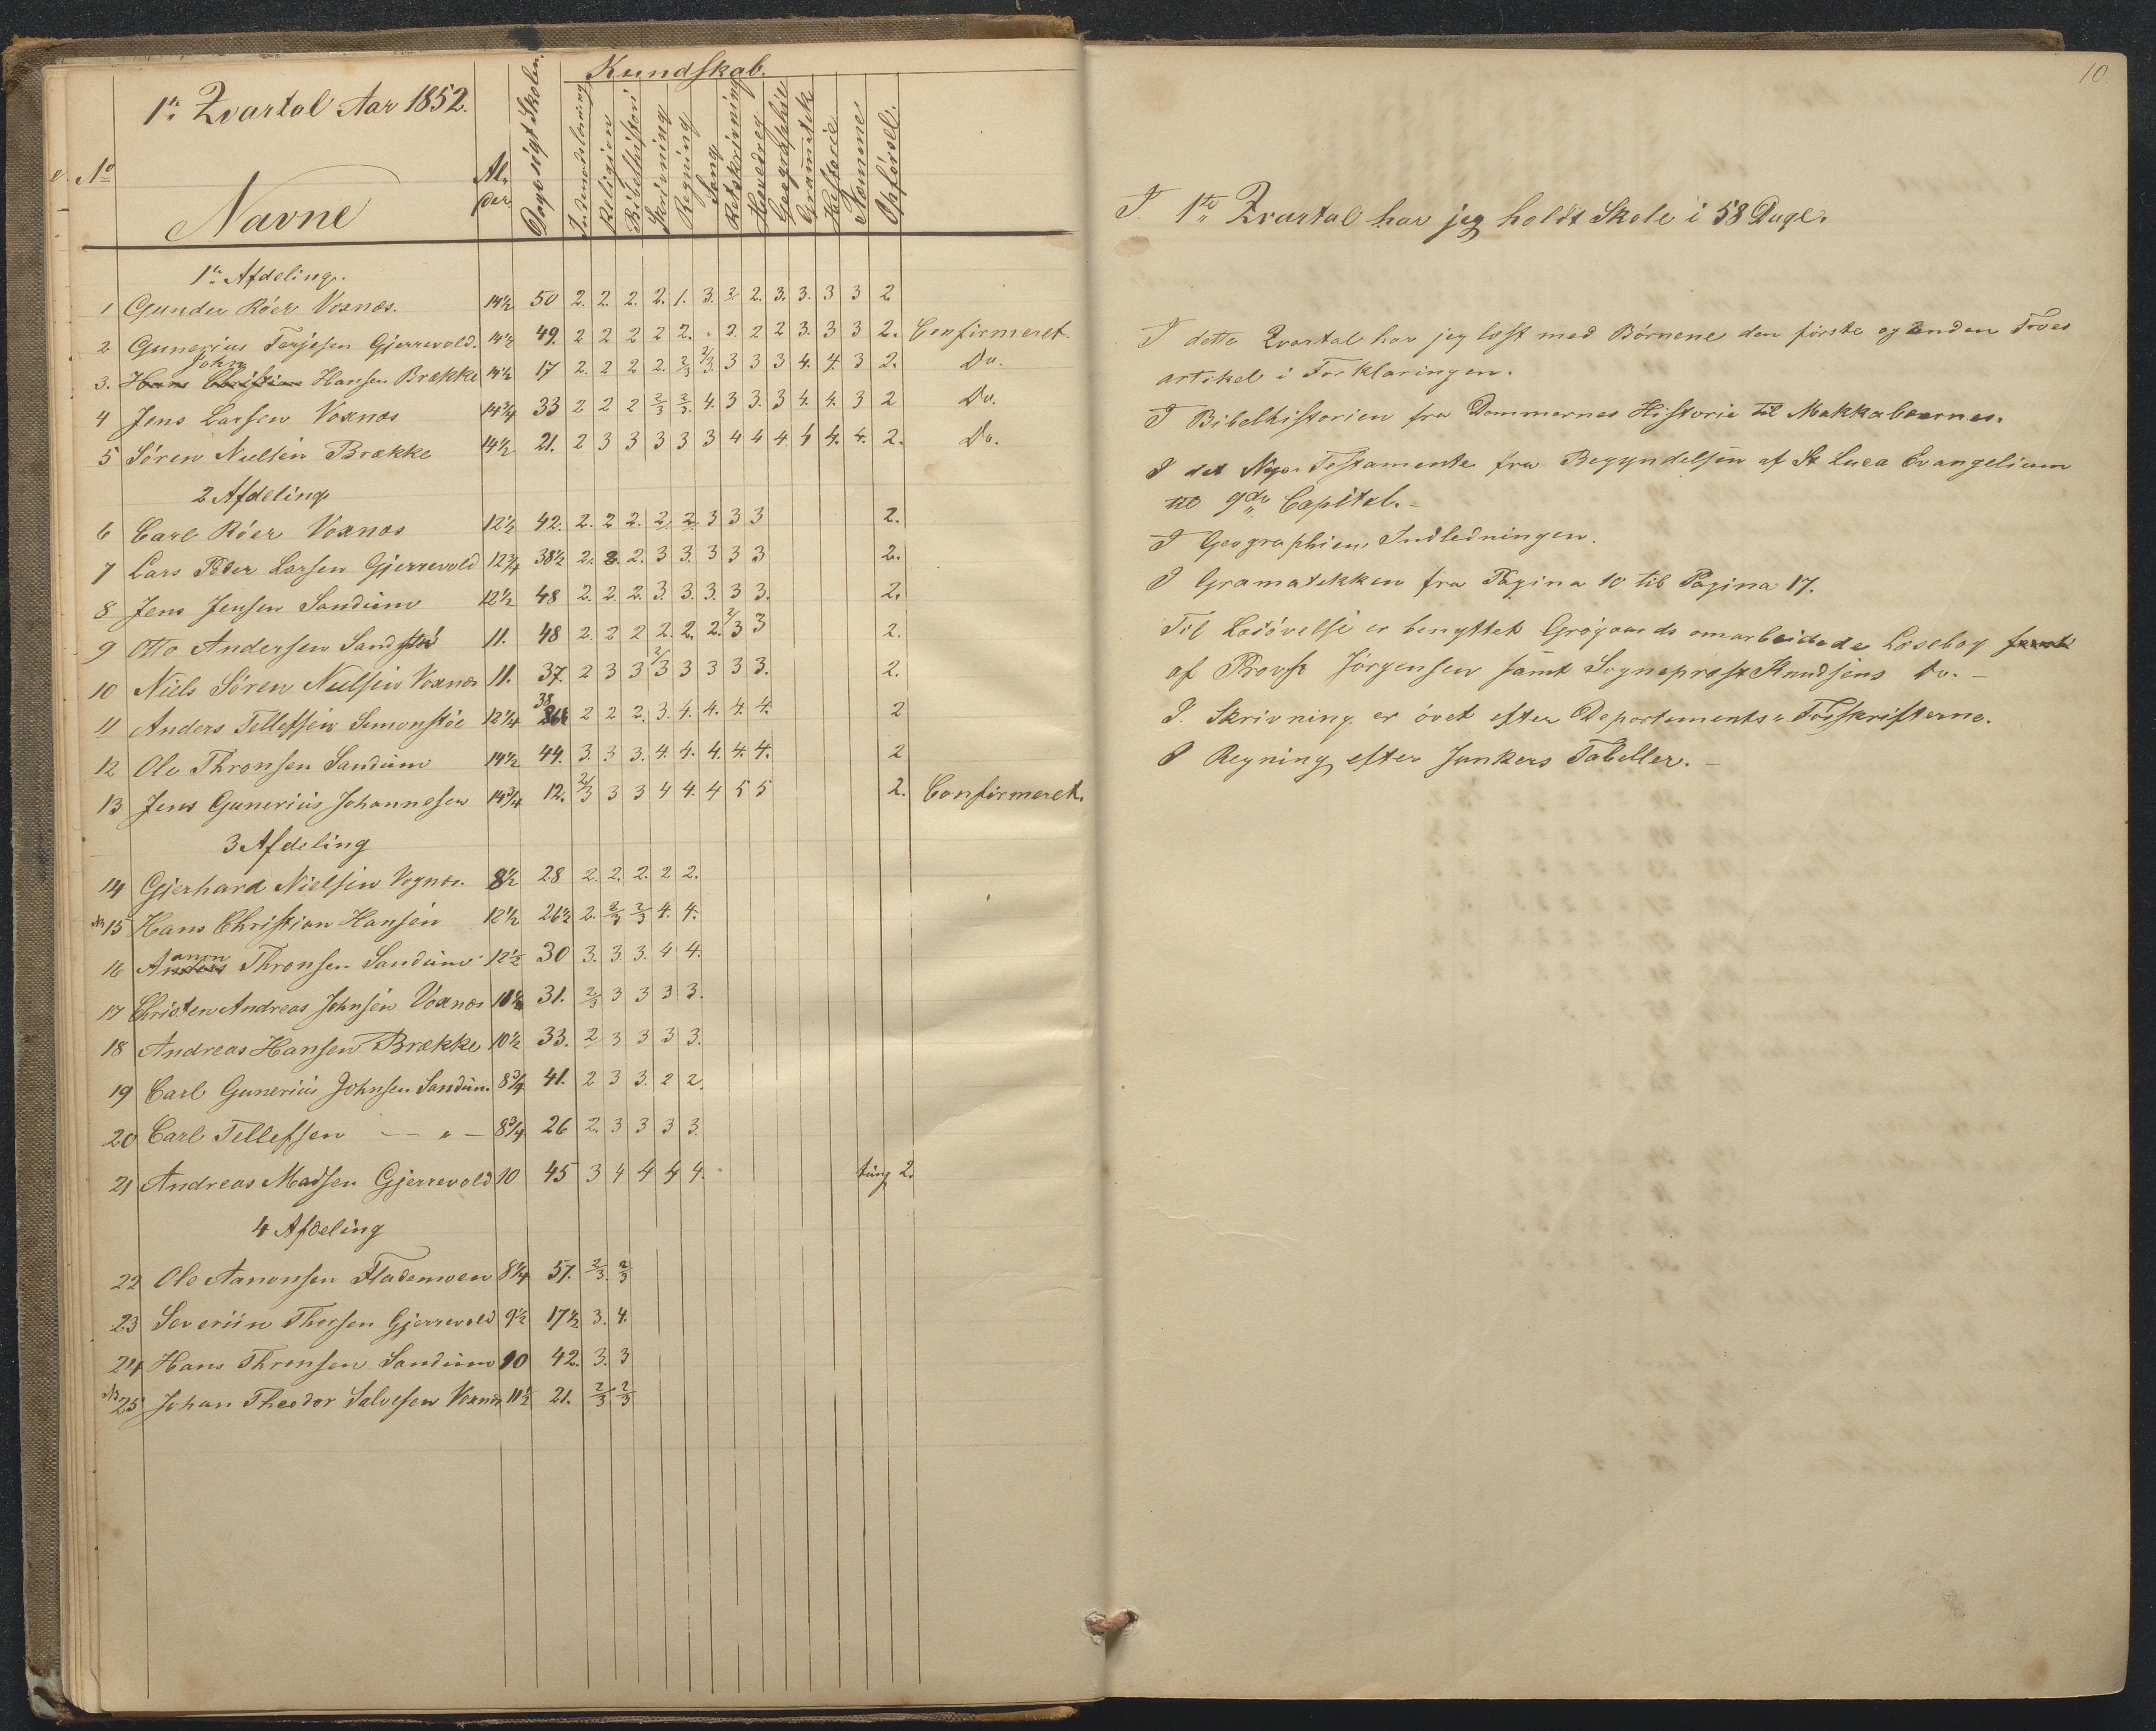 1te Qvartal Aar 1852.
Kundskab.
No
Navne
Alder
Dage søgt Skolen
Indenadslæsning
Religion
Bibelhistori
Skrivning
Regning
Sang
Retskrivning
Hovedreg
Geographie
Gramatik
Historie
Nemme
Opførsel.
1te Afdeling.
1 Gunder Röer Voxnæs. 14½ 50 2. 2. 2. 2. 1. 3. 2 2. 3. 3. 3 3 2
2 Gunerius Terjesen Gjerrevold. 14½ 49. 2 2 2 2 2. . 2. 2 2 3. 3 3 2. Confirmeret.
John
3. Hans Christian Hansen Brække 14½ 17 2. 2 2 2. 2/3 2/3 3 3 3 4. 4. 3 2. Do.
4 Jens Larsen Voxnæs 14¾ 33 2 2 2 2/3 2/3. 4. 3 3. 3 4. 4. 3 2 Do.
5 Søren Nielsen Brække 14½ 21. 2 3 3 3 3 3 4 4 4 4 4. 4. 2. Do.
2 Afdeling
6 Carl Röer Voxnæs 12½ 42. 2. 2 2. 2. 2. 3 3 3 2.
7 Lars Peder Larsen Gjerrevold 12¾ 38½ 2. 2. 2. 3 3. 3 3 3 2.
8 Jens Jensen Sandum 12½ 48 2. 2. 2. 3. 3. 3. 3 3. 2.
9 Otto Andersen Sandstø 11. 48 2. 2 2 2. 2. 2. 2/3 3 2.
10 Niels Søren Nielsen Voxnæs 11. 37. 2 3 3 2/3 3 3 3 3. 2.
11 Anders Tellefsen Simonstöe 12¼ 38 2 2 2. 3. 4. 4. 4. 4. 2
12 Ole Thronsen Sandum 14½ 44. 3. 3 3. 4. 4. 4. 4. 4. 2
13 Jens Gunerius Johannesen 14¾ 12. 2/3 3 3 4 4. 4 5 5 2. Confirmeret.
3 Afdeling
14 Gjerhard Nielsen Vognæs. 8½ 28 2. 2. 2. 2 2.
15 Hans Christian Hansen 12½ 26½ 2. 2/3 2/3 4. 4.
anon
16 Anders Thronsen Sandum 12½ 30 3. 3. 3. 4 4.
17 Christen Andreas Johnsen Voxnæs 10½ 31. 2/3 3 3 3 3.
18 Andreas Hansen Brække 10½ 33. 2 3 3 3 3.
19 Carl Gunerius Johnsen Sandum 8¾ 41. 2 3 3. 2 2.
20 Carl Tellefsen — " — 8¾ 26 2. 3 3 3 3.
21 Andreas Madsen Gjerrevold 10 45 3 4 4 4 4. tung 2.
4 Afdeling
22 Ole Aanonsen Fladenwen 8¼ 57. 2/3. 2/3
23 Severiin Thorsen Gjerrevold 9½ 17½ 3. 4.
24 Hans Thronsen Sandum 10 42. 3. 3
25 Johan Theodor Salvesen Voxnæs 11½ 21. 2/3 2/3
10.
I 1te Qvartal har jeg holdt Skole i 58 Dage.
I dette Qvartal har jeg læst med Börnene den förste og anden Troes
artikel i Forklaringen.
I Bibelhistorien fra Dommernes Historie til Makkabæernes.
I det Nye Testamente fra Begyndelsen af St Luca Evangelium
til 9de Capitel. –
I Geographien, Indledningen.
I Gramatikken fra Pagina 10 til Pagina 17.
Til Læsövelse er benyttet Grögaards omarbeidede Læsebog samt
af Provst Jörgensen samt Sogneprest Knudsens Do. –
I. Skrivning er övet efter Departements Forskrifterne.
I Regning efter Junkers Tabeller. –